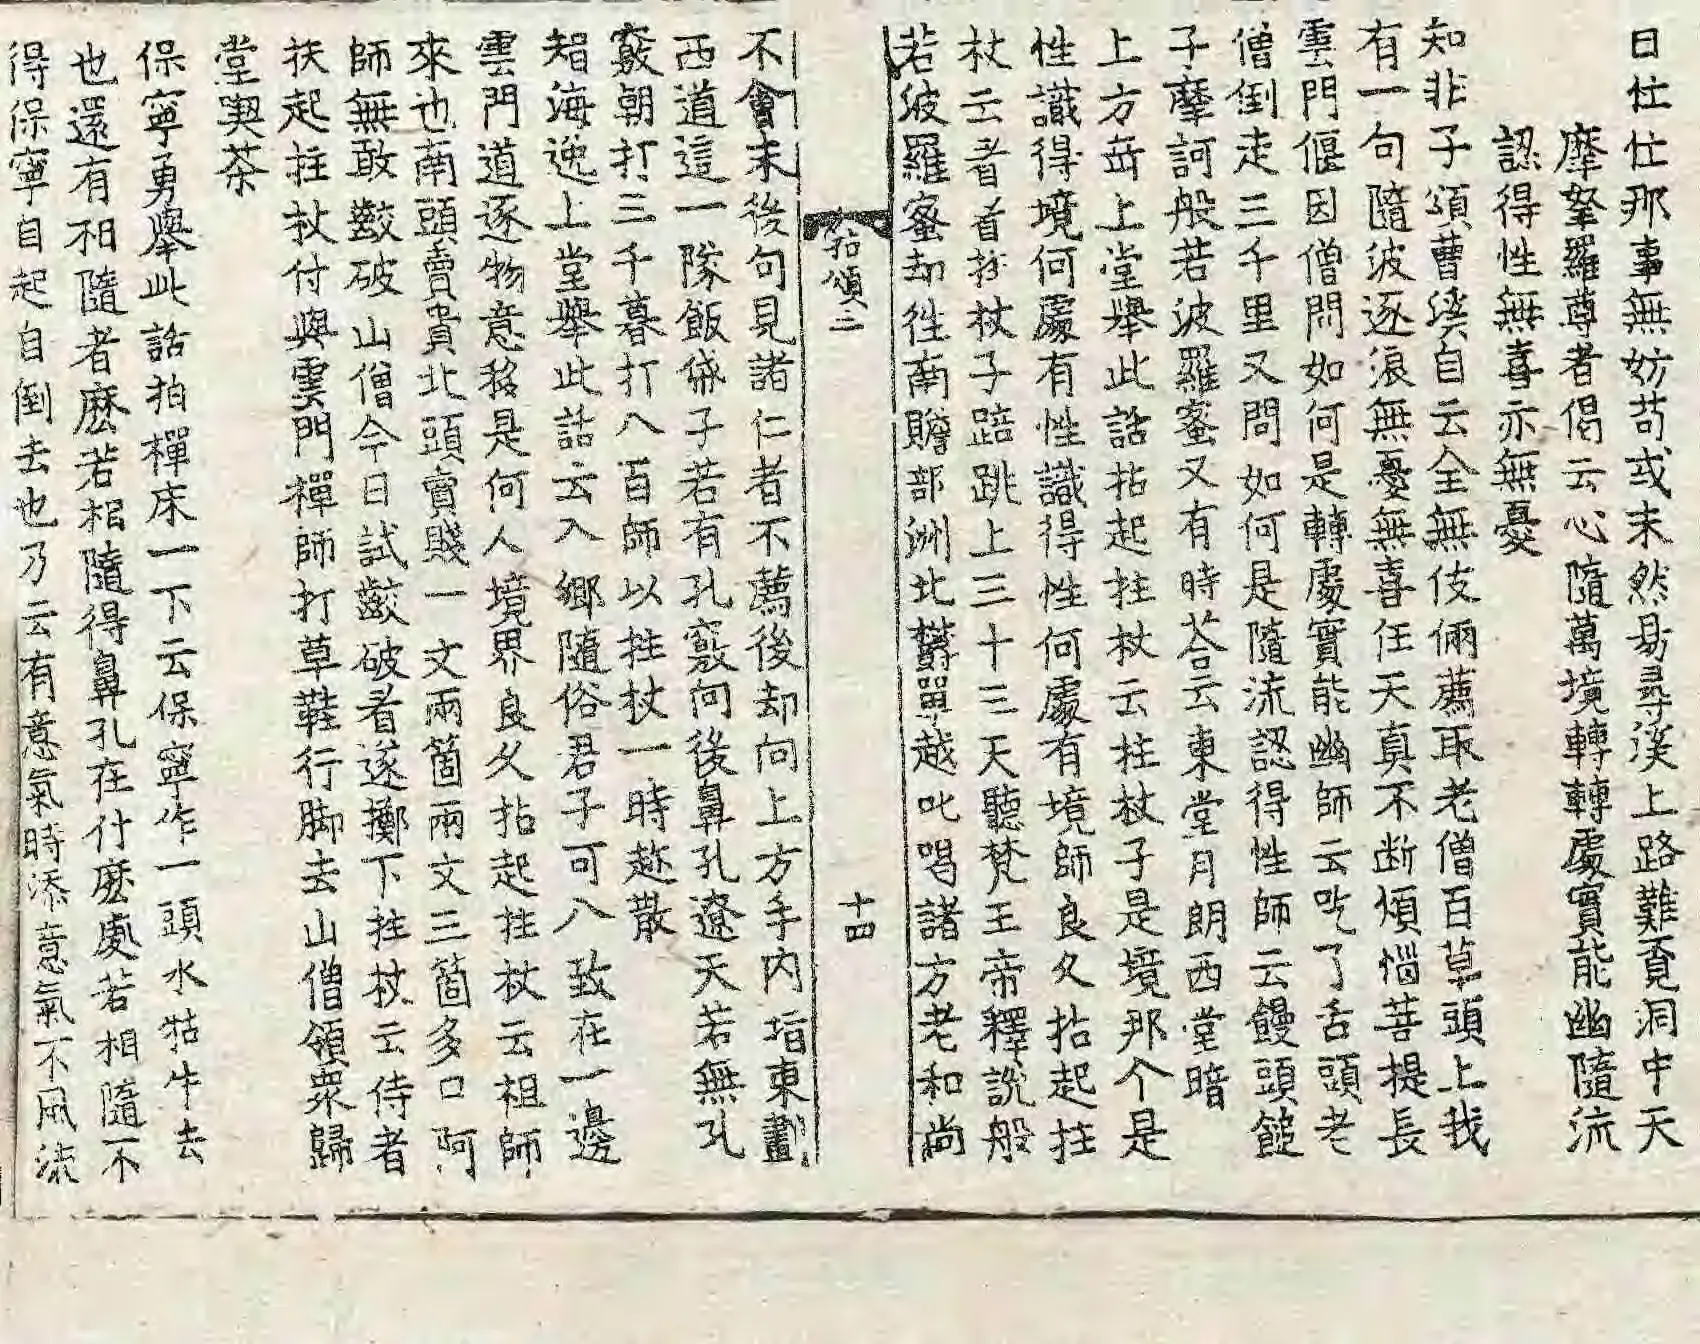 日仕仕那事無妨苟或未然易尋渓上路難覓洞中天
摩拏羅尊者偈云心隨萬境轉轉處實能幽隨流
認得性無喜亦無憂
知非子頌曹溪自云全無伎倆薦取老僧百草頭上我
有一句隨波逐浪無憂無喜任天真不断煩惱菩提長
雲門偃因僧問如何是轉處實能幽師云吃了舌頭老
僧倒走三千里又問如何是隨流認得性師云饅頭䭔
子摩訶般若波羅蜜又有時荅云東堂月朗西堂暗
上方岳上堂舉此話拈起拄杖云拄杖子是境那个是
性識得境何處有性識得性何處有境師良久拈起拄
杖云看看拄杖子踣跳上三十三天聽梵王帝釋説般
若波羅蜜却徃南贍部洲北欝單越叱喝諸方老和尚
拈頌二 十四
不會末後句見諸仁者不薦後却向上方手内指東劃
西道這一隊飯袋子若有孔竅向後鼻孔遼天若無孔
竅朝打三千暮打八百師以拄杖一時趂散
智海逸上堂舉此話云入鄉隨俗君子可八致在一邊
雲門道逐物意移是何人境界良久拈起拄杖云祖師
來也南頭賣貴北頭賣賤一文兩箇兩文三箇多口阿
師無敢齩破山僧今日試齩破看遂擲下拄杖云侍者
扶起拄杖付與雲門禪師打草鞋行脚去山僧領衆歸
堂喫茶
保寧勇舉此話拍禪床一下云保寧作一頭水牯牛去
也還有相隨者麽若相隨得鼻孔在什麽處若相隨不
得保寧自起自倒去也乃云有意氣時添意氣不風流